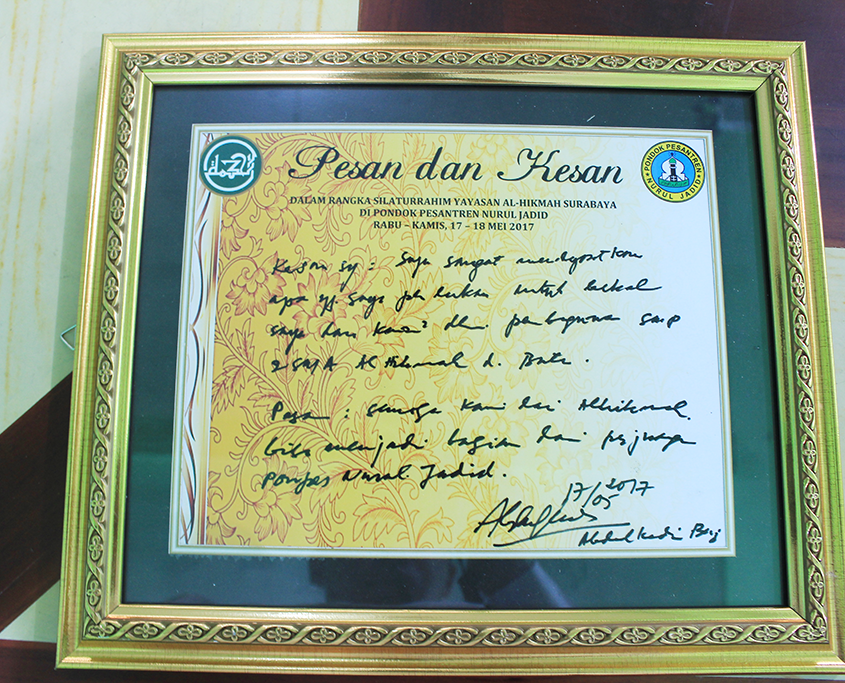 Pesan dan Kesan
PONDOK PESANTREN
NURUL JADID
DALAM RANGKA SILATURRAHIM YAYASAN AL-HIKMAH SURABAYA
DI PONDOK PESANTREN NURUL JADID
RABU – KAMIS, 17 – 18 MEI 2017
Kesan sy : Saya sangat mendapatkan
apa yg saya perlukan untuk bekal
saya dan kawan² dlm SMP
2 SMA Al Hikmah di Batu.
Pesan : Semoga kami dari Alhikmah
bisa menjadi bagian dari
Ponpes Nurul Jadid.
17/05 2017
Abdul Kadir